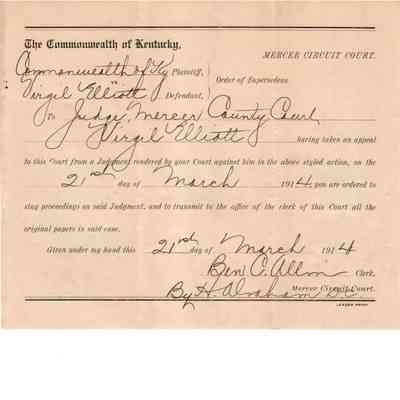 The Commonwealth of Kentucky,
MERCER CIRCUIT COURT.
Commonwealth of Ky Plaintiff,
Order of Supersedeas.
Virgil Elliott Defendant,
To Judge, Mercer County Court,
Virgil Elliott having taken an appeal
to this Court from a Judgment rendered by your Court against him in the above styled action, on the
21st day of March 1914, you are ordered to
stay proceedings on said Judgment, and to transmit to the office of the clerk of this Court all the
original papers in said case.
Given under my hand this 21st day of March 1914
Ben C. Allin Clerk.
Mercer Circuit Court.
By H. Abraham D.C.
LEADER PRINT.